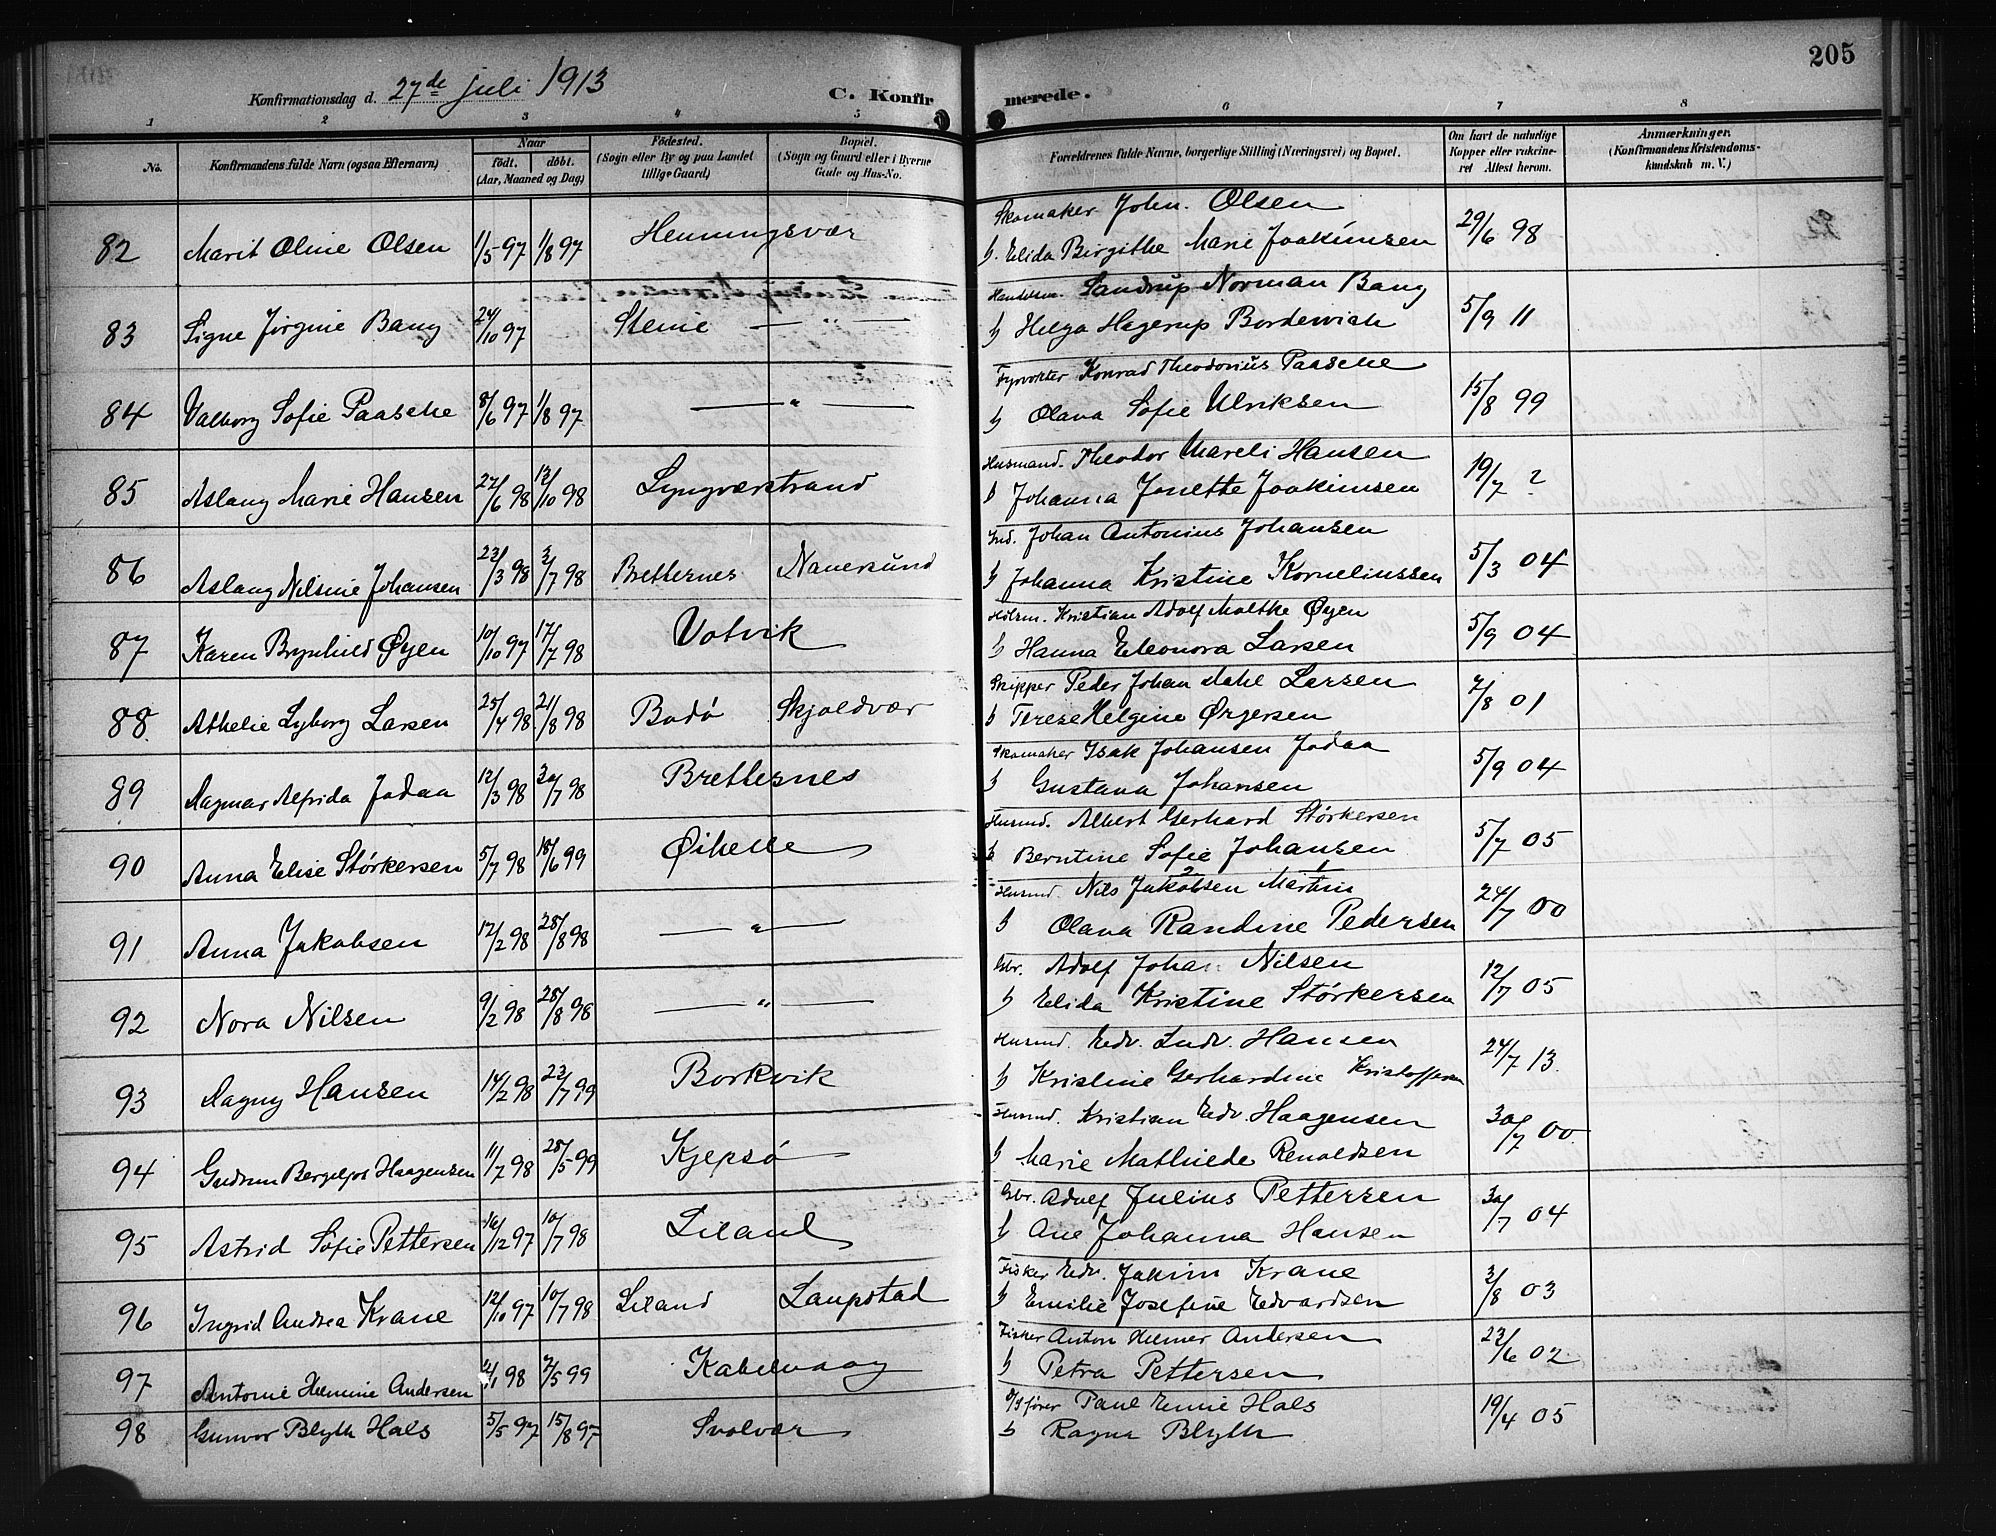 205
Konfirmationsdag d. 27de juli 1913
C. Konfirmerede.
1 2 3 4 5 6 7 8
No. Konfirmandens fulde Navn (ogsaa Efternavn) Naar født. døbt. (Aar, Maaned og Dag) Fødested. (Sogn eller By og paa Landet tillige Gaard) Bopæl. (Sogn og Gaard eller i Byerne Gade og Hus-No. Forældrenes fulde Navne, borgerlige Stilling (Næringsvei) og Bopæl. Om havt de naturlige Kopper eller vakcineret Attest herom. Anmærkninger. (Konfirmandens Kristendomskundskab m. V.)
82 Marit Oline Olsen 1/5 97 1/8 97 Henningsvær Skomaker John. Olsen
h. Elida Birgithe Marie Joakimsen 29/6 98
83 Signe Jørgine Bang 24/10 97 Stene — " — Handelsm. Sandrup Norman Bang
h Helga Hagerup Bordewich 5/9 11
84 Valborg Sofie Paasche 8/6 97 1/8 97 — " — Fyrvokter Konrad Theodorius Paasche
h Olava Sofie Ulriksen 15/8 99
85 Aslaug Marie Hansen 27/6 98 12/10 98 Lyngværstrand Husmand. Theodor Mareli Hansen
h Johanna Jonette Joakimsen 19/7 ?
86 Aslaug Nilsine Johansen 23/3 98 3/7 98 Brettesnes Naversund Ind. Johan Antonius Johansen
h Johanna Kristine Korneliussen 5/3 04
87 Karen Brynhild Øyen 10/10 97 17/7 98 Votvik Kristian Adolf Moltke Øyen
h Hanna Eleonora Larsen 5/9 04
88 Athelie Lyborg Larsen 25/4 98 21/8 98 Bodø Skjoldvær Skipper Peder Johan Dahl Larsen
h Terese Helgine Ørjersen 7/8 01
89 Dagmar Alfrida Jodaa 12/3 98 30/7 98 Brettesnes Skomaker Isak Johansen Jodaa
h Gustava Johansen 5/9 04
90 Anna Elise Størkersen 5/7 98 18/6 99 Øihelle Husmd. Albert Gerhard Størkersen
h Berntine Sofie Johansen 5/7 05
91 Anna Jakobsen 12/2 98 28/8 98 — " — Husmd. Nils Jakobsen Martin
h Olava Randine Pedersen 24/7 00
92 Nora Nilsen 9/2 98 28/8 98 — " — Gbr. Adolf Johan Nilsen
h Elida Kristine Størkersen 12/7 05
93 Dagny Hansen 14/2 98 23/7 99 Borkvik Husmd. Edv. Ludv. Hansen
h Kristine Gerhardine Kristoffersen 24/7 13.
94 Gudrun Bergljot Haagensen 11/7 98 28/5 99 Kjepsø Husmd. Kristian Edv. Haagensen
h Marie Mathilde Renoldsen 30/7 00.
95 Astrid Sofie Pettersen 16/12 97 10/7 98 Liland Gbr. Adolf Julius Pettersen
h Ane Johanna Hansen 30/7 04
96 Ingrid Andrea Krane 12/10 97 10/7 98 Liland Laupstad Fisker Edv. Jakim Krane
h Emilie Josefine Edvardsen 3/8 03
97 Antonie Helmine Andersen 98 7/5 99 Kabelvaag Fisker Anton Helmer Andersen
h Petra Pettersen 23/6 02
98 Gunvor Blyth Hals 5/5 97 15/8 97 Svolvær Paul Emil Hals
h Ragna Blyth 19/4 05